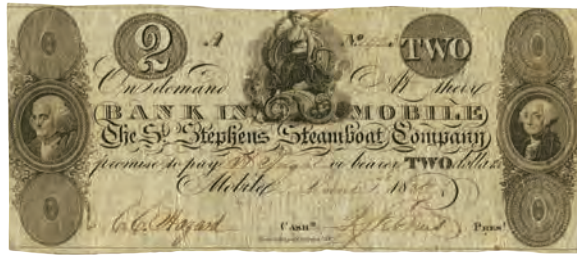 2 A No. TWO
On demand At their
BANK IN MOBILE
The St. Stephens Steamboat Company
promise to pay or bearer TWO dollars
Mobile 18
C.C. Hazard CASHR. PREST.